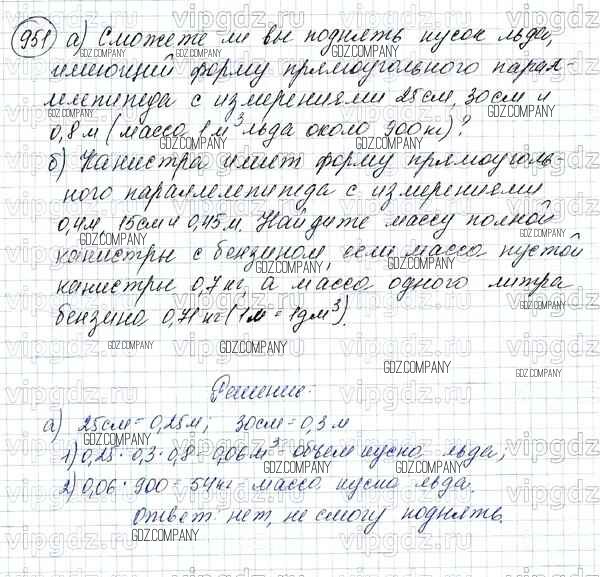 951 а) Сможете ли вы поднять кусок льда,
имеющий форму прямоугольного парал-
лелепипеда с измерениями 25см, 30см и
0,8 м (масса 1м³ льда около 900кг)?
б) Канистра имеет форму прямоуголь-
ного параллелепипеда с измерениями
0,4м, 15см и 0,45 м. Найдите массу полной
канистры с бензином, если масса пустой
канистры 0,7 кг, а масса одного литра
бензина 0,71 кг (1л = 1дм³).
Решение:
а) 25см = 0,25м; 30см = 0,3 м
1) 0,25 · 0,3 · 0,8 = 0,06 м³ - объем куска льда;
2) 0,06 · 900 = 54кг - масса куска льда.
Ответ: нет, не смогу поднять.